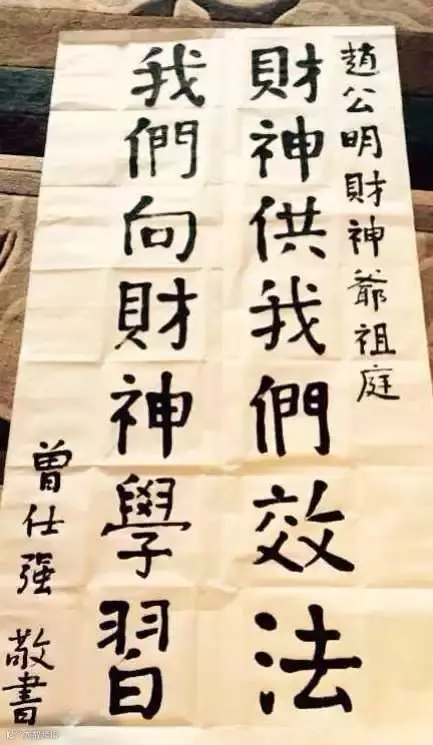 趙公明財神爺祖庭
財神供我們效法
我們向財神學習
曾仕强 敬書